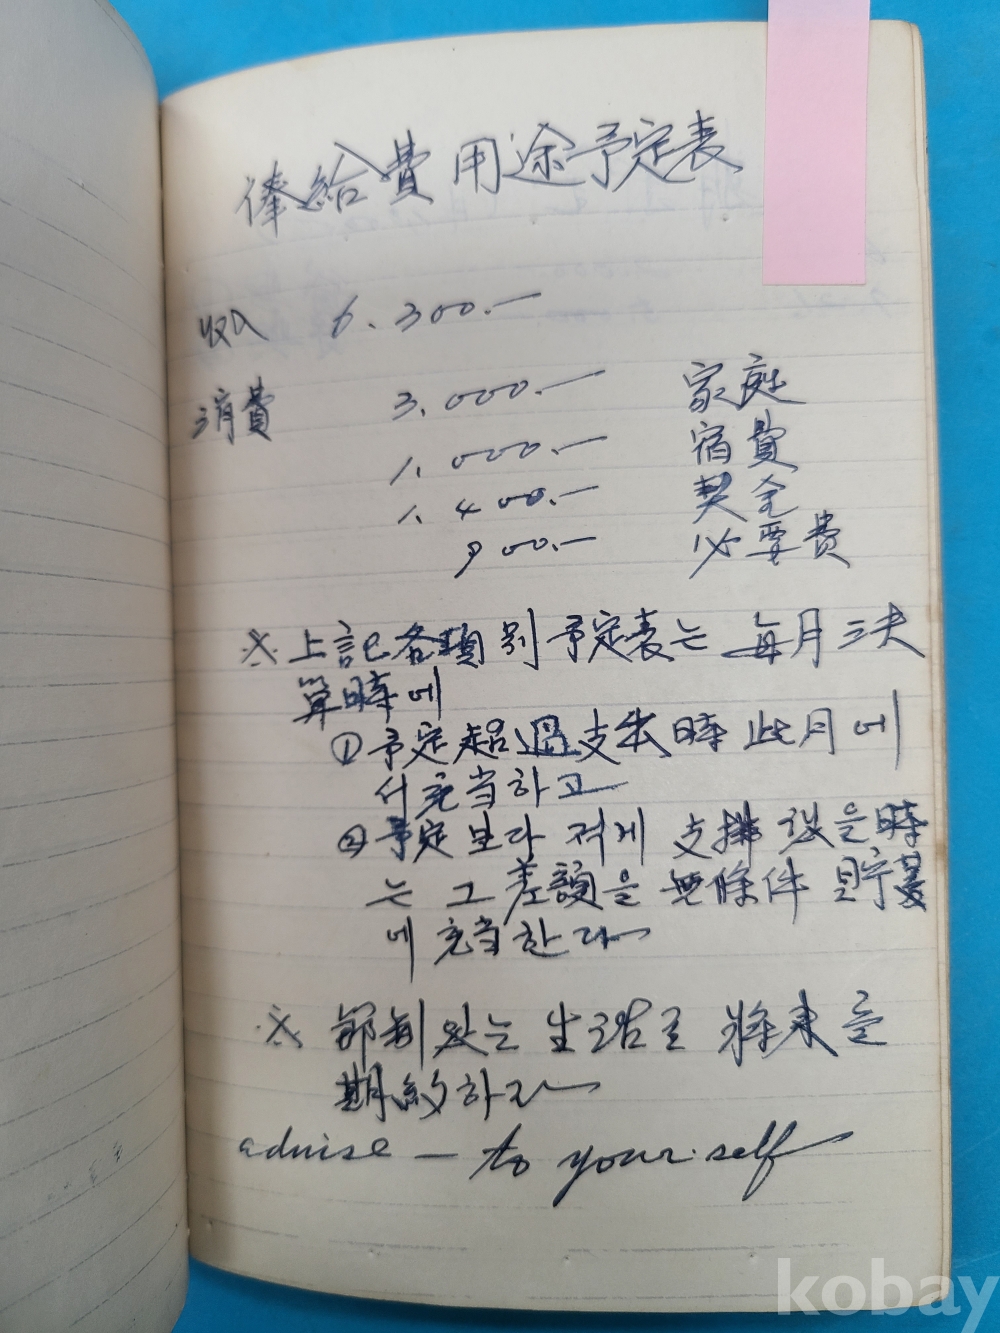 俸給費用途予定表
収入 6.300.—
消費 3.000.— 家庭
1.000.— 宿費
1.400.— 契金
900.— 必要費
※ 上記各類別 予定表는 每月 決
算時에
① 予定超過支出時 此月에
서 充当하고
② 予定보다 적게 支拂 했을時
는 그 差額을 無條件 貯蓄
에 充当한다
※ 節制있는 生活로 將來를
期約하고
advise — to yourself
kobay